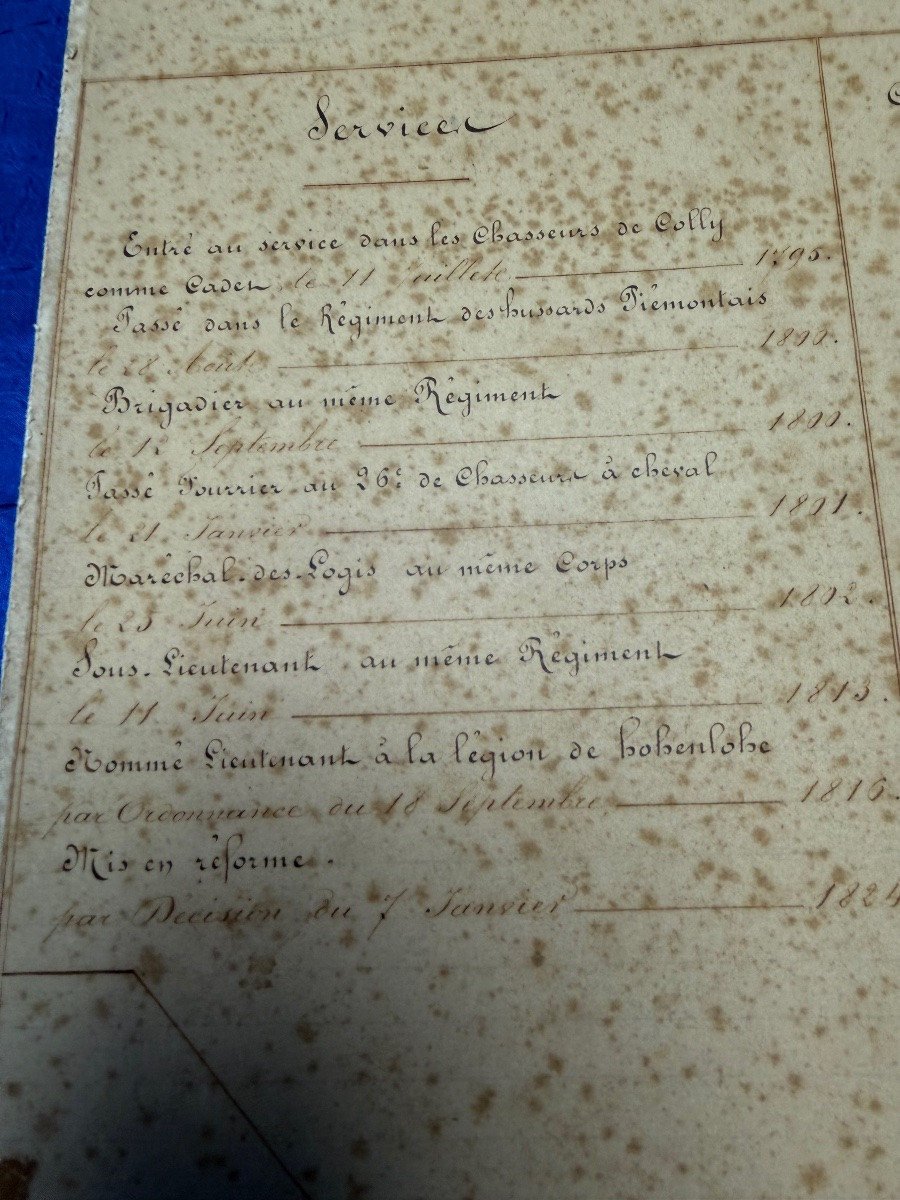 Services
Entré au service dans les Chasseurs de Colly
comme Cadet le 11 Juillet 1795.
Passé dans le Régiment des hussards Piémontais
le 28 Août 1800.
Brigadier au même Régiment
le 12 Septembre 1800.
Passé Fourrier au 26e de Chasseurs à cheval
le 21 Janvier 1801.
Maréchal-des-Logis au même Corps
le 25 Juin 1802.
Sous-Lieutenant au même Régiment
le 11 Juin 1813.
Nommé Lieutenant à la légion de hohenlohe
par Ordonnance du 18 Septembre 1816.
Mis en réforme.
par Décision du 7 Janvier 1824